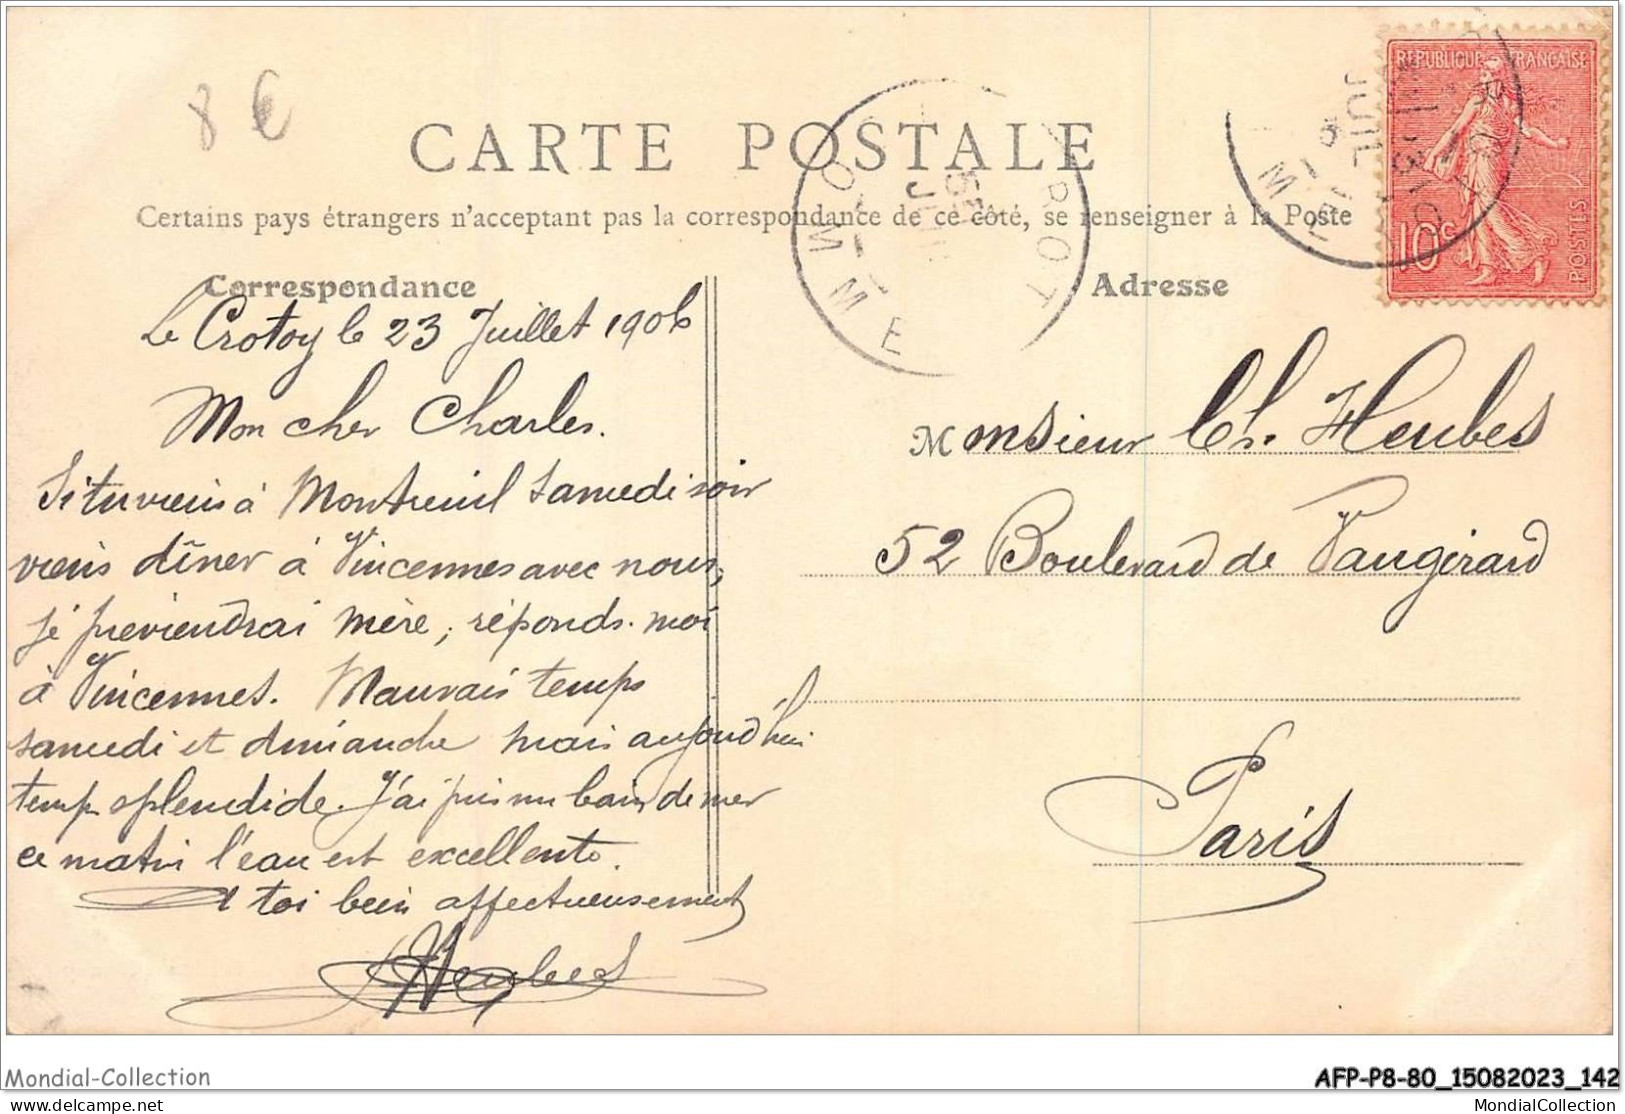 8 €
CARTE POSTALE
Certains pays étrangers n'acceptent pas la correspondance de ce côté, se renseigner à la Poste
Correspondance
Le Crotoy le 23 Juillet 1906
Mon cher Charles.
Si tu viens à Montreuil samedi soir
viens dîner à Vincennes avec nous,
je préviendrai mère, réponds-moi
à Vincennes. Mauvais temps
samedi et dimanche mais aujourd'hui
temps splendide. J'ai pris un bain de mer
ce matin l'eau est excellente.
A toi bien affectueusement
Heubes
Adresse
Monsieur Ch. Heubes
52 Boulevard de Vaugirard
Paris
REPUBLIQUE FRANÇAISE
10c
POSTES
ROT
SOMME
JUIL
Mondial-Collection
AFP-P8-80_15082023_142
www.delcampe.net
MondialCollection